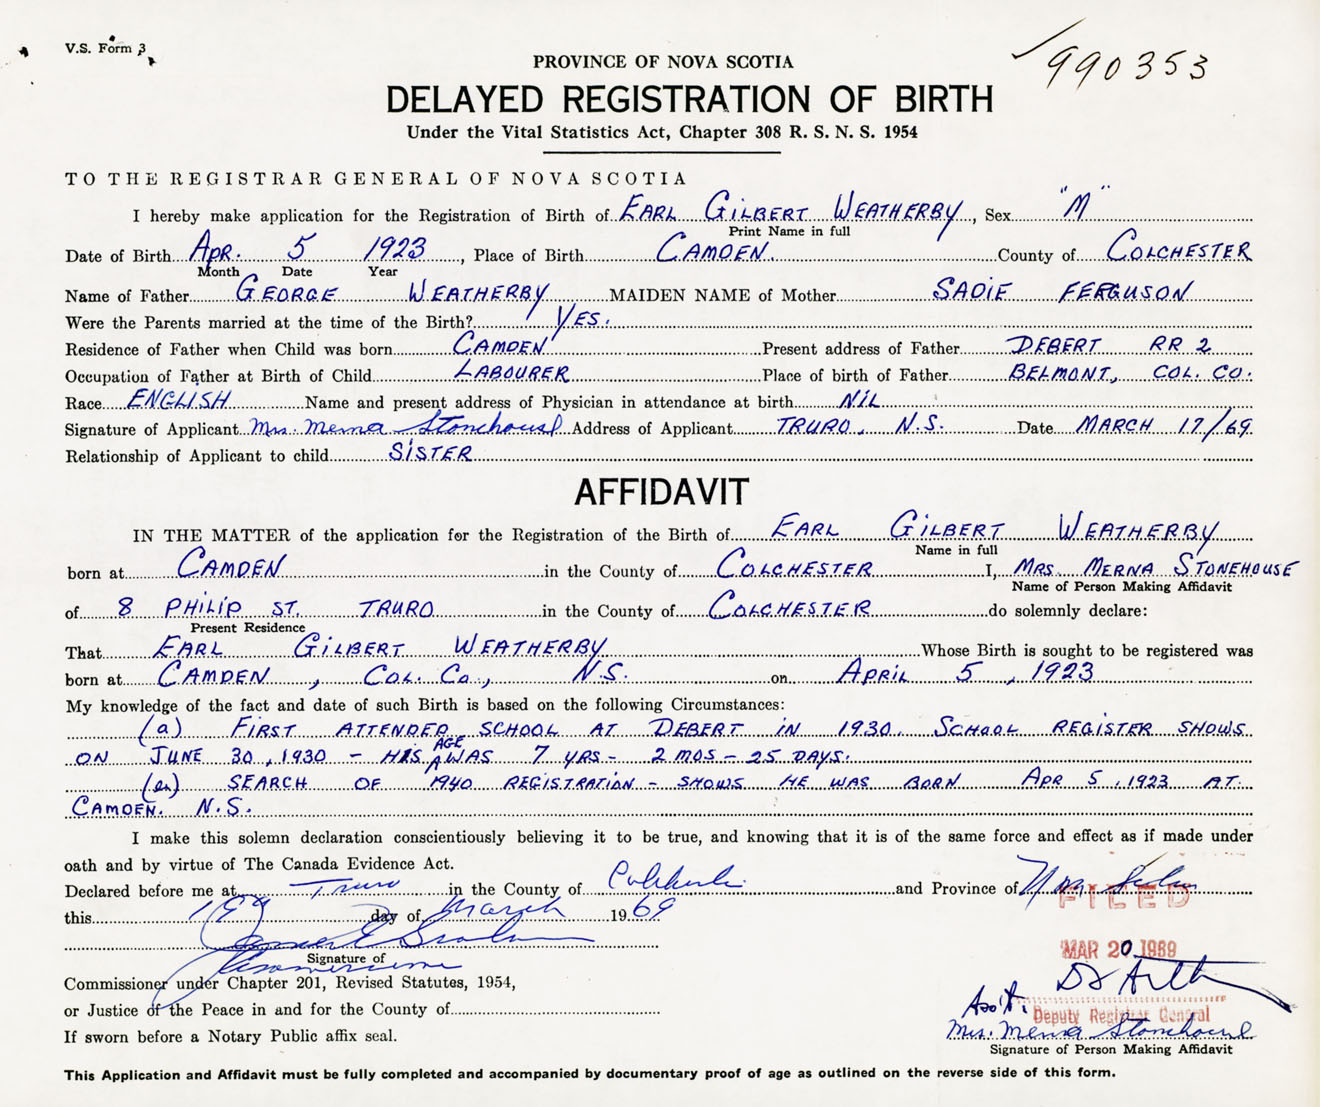 V.S. Form 3
990353
PROVINCE OF NOVA SCOTIA
DELAYED REGISTRATION OF BIRTH
Under the Vital Statistics Act, Chapter 308 R. S. N. S. 1954
TO THE REGISTRAR GENERAL OF NOVA SCOTIA
I hereby make application for the Registration of Birth of EARL GILBERT WEATHERBY, Sex "M"
Print Name in full
Date of Birth APR. 5 1923, Place of Birth CAMDEN. County of COLCHESTER
Month Date Year
Name of Father GEORGE WEATHERBY MAIDEN NAME of Mother SADIE FERGUSON
Were the Parents married at the time of the Birth? YES.
Residence of Father when Child was born CAMDEN Present address of Father DEBERT RR 2
Occupation of Father at Birth of Child LABOURER Place of birth of Father BELMONT, COL. CO.
Race ENGLISH Name and present address of Physician in attendance at birth NIL
Signature of Applicant Mrs. Merna Stonehouse Address of Applicant TRURO, N.S. Date MARCH 17/69
Relationship of Applicant to child SISTER
AFFIDAVIT
IN THE MATTER of the application for the Registration of the Birth of EARL GILBERT WEATHERBY
Name in full
born at CAMDEN in the County of COLCHESTER I, MRS. MERNA STONEHOUSE
Name of Person Making Affidavit
of 8 PHILIP ST. TRURO in the County of COLCHESTER do solemnly declare:
Present Residence
That EARL GILBERT WEATHERBY Whose Birth is sought to be registered was
born at CAMDEN, COL. CO., N.S. on APRIL 5, 1923
My knowledge of the fact and date of such Birth is based on the following Circumstances:
(a) FIRST ATTENDED SCHOOL AT DEBERT IN 1930. SCHOOL REGISTER SHOWS
ON JUNE 30, 1930 - HIS AGE WAS 7 YRS - 2 MOS - 25 DAYS.
SEARCH OF 1940 REGISTRATION - SHOWS HE WAS BORN APR 5, 1923 AT
CAMDEN. N.S.
I make this solemn declaration conscientiously believing it to be true, and knowing that it is of the same force and effect as if made under
oath and by virtue of The Canada Evidence Act.
Declared before me at Truro in the County of Colchester and Province of Nova Scotia
FILED
this 19 day of March 1969
MAR 20 1969
Signature of
Commissioner under Chapter 201, Revised Statutes, 1954,
Ass't. Deputy Registrar General
or Justice of the Peace in and for the County of
Mrs. Merna Stonehouse
If sworn before a Notary Public affix seal.
Signature of Person Making Affidavit
This Application and Affidavit must be fully completed and accompanied by documentary proof of age as outlined on the reverse side of this form.